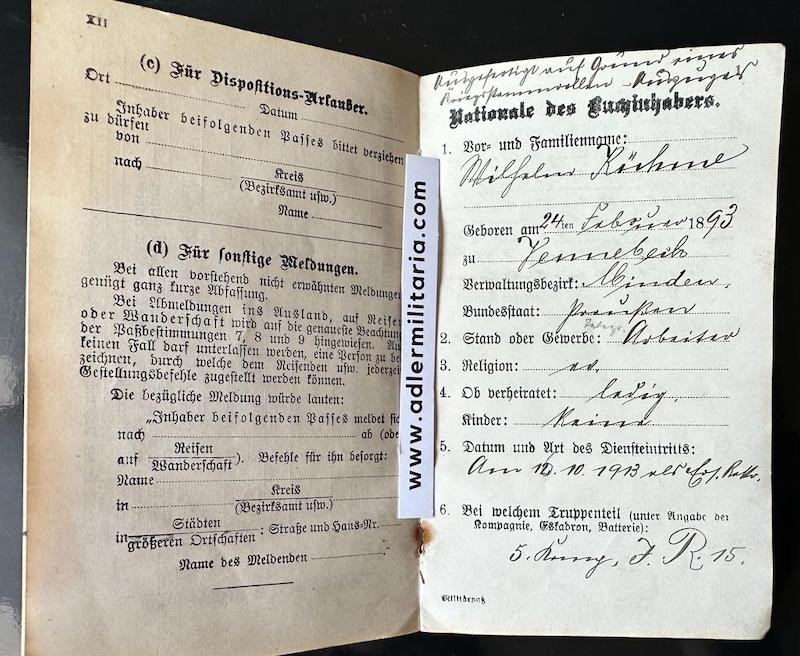 XII
(c) Für Dispositions-Urlauber.
Ort Datum
Inhaber beifolgenden Passes bittet verziehen
zu dürfen
von
nach Kreis
(Bezirksamt usw.)
Name
(d) Für sonstige Meldungen.
Bei allen vorstehend nicht erwähnten Meldungen
genügt ganz kurze Abfassung.
Bei Abmeldungen ins Ausland, auf Reisen
oder Wanderschaft wird auf die genaueste Beachtung
der Paßbestimmungen 7, 8 und 9 hingewiesen.
keinen Fall darf unterlassen werden, eine Person zu be
zeichnen, durch welche dem Reisenden usw. jederzeit
Gestellungsbefehle zugestellt werden können.
Die bezügliche Meldung würde lauten:
„Inhaber beifolgenden Passes meldet sich
nach ab (ode
auf Reisen
Wanderschaft). Befehle für ihn besorgt:
Name
in Kreis
(Bezirksamt usw.)
in Städten
größeren Ortschaften: Straße und Haus-Nr.
Name des Meldenden
www.adlermilitaria.com
Ausgefertigt auf Grund eines
Kriegsstammrollen-Auszuges
Nationale des Buchinhabers.
1. Vor- und Familienname:
Wilhelm
Geboren am 24ten Februar 1893
zu
Verwaltungsbezirk: Minden.
Bundesstaat: Preußen
2. Stand oder Gewerbe: Arbeiter
3. Religion: ev.
4. Ob verheiratet: ledig.
Kinder: keine
5. Datum und Art des Diensteintritts:
Am 10. 1913 als Ers. Rekr.
6. Bei welchem Truppenteil (unter Angabe der
Kompagnie, Eskadron, Batterie):
5. Komp. J. R. 15.
Militärpaß